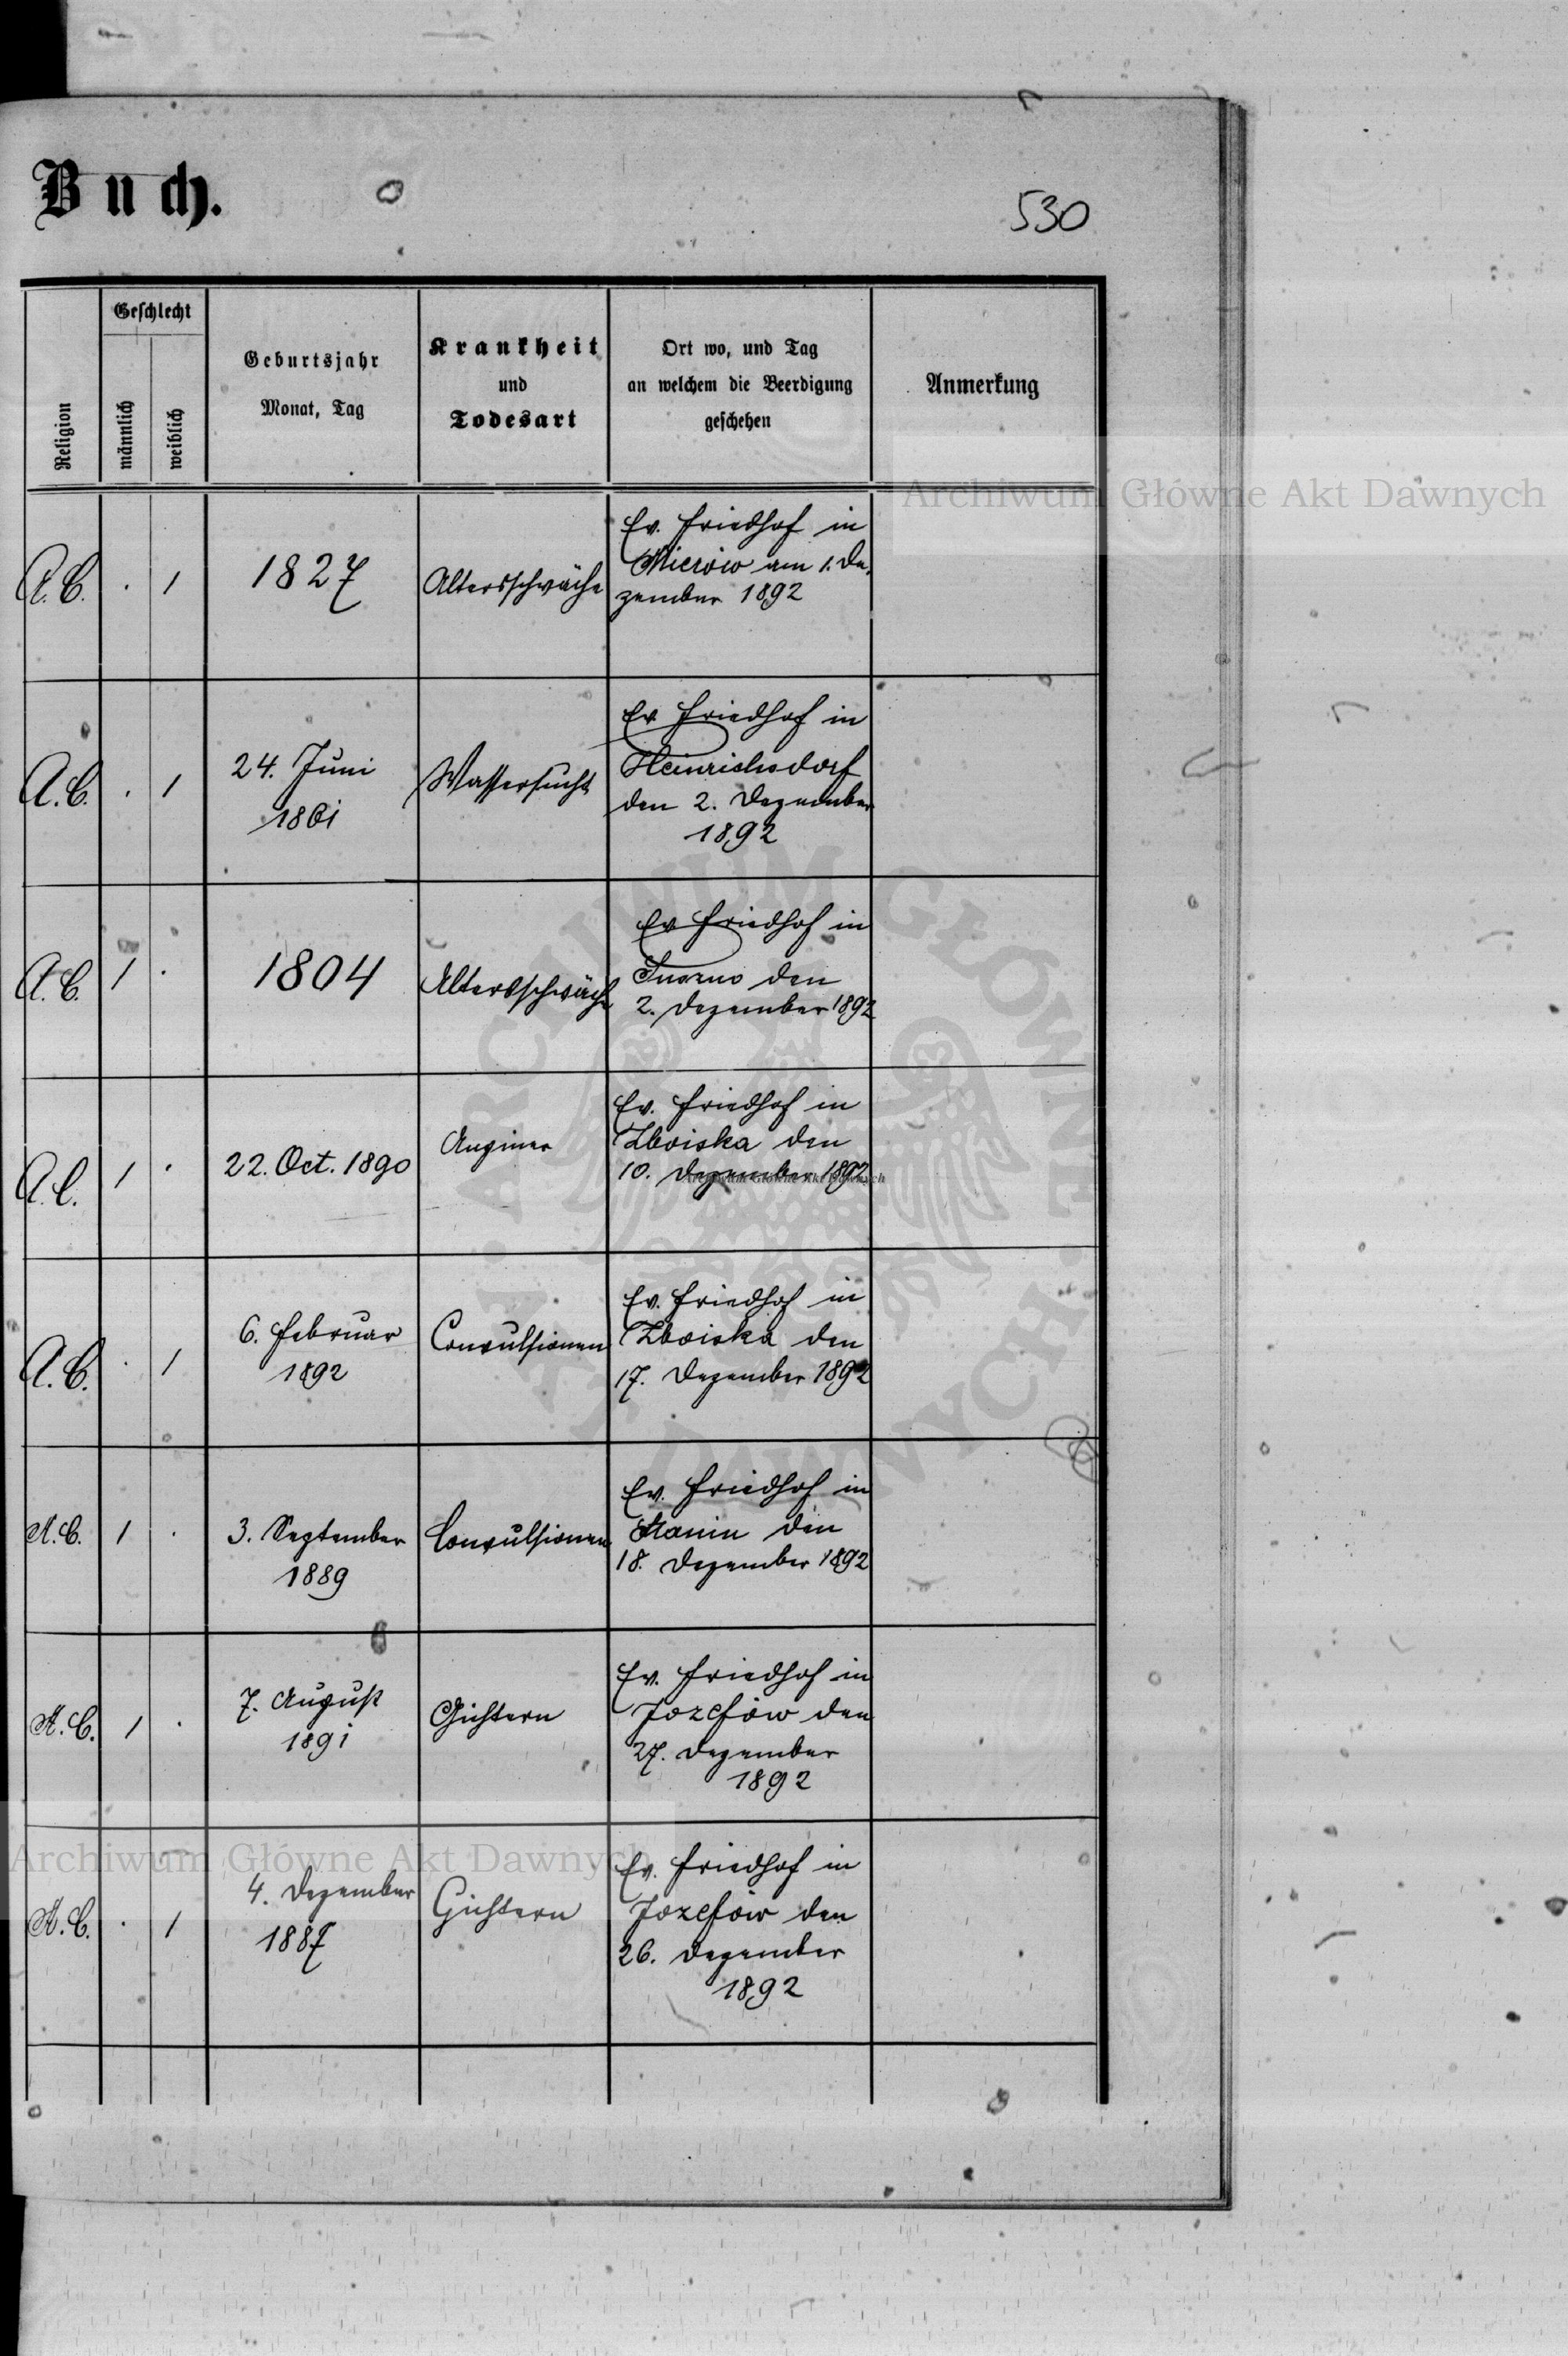 Buch.
530
Religion
Geschlecht
männlich
weiblich
Geburtsjahr
Monat, Tag
Krankheit
und
Todesart
Ort wo, und Tag
an welchem die Beerdigung
geschehen
Anmerkung
A.C. . 1 1827 Altersschwäche
Ev. Friedhof in
Mierów am 1. De-
zember 1892
A.C. . 1
24. Juni
1861
Wassersucht
Ev Friedhof in
Heinrichsdorf
den 2. Dezember
1892
A.C. 1 . 1804 Altersschwäche
Ev Friedhof in
den
2. Dezember 1892
A.C. 1 . 22. Oct. 1890
Ev. Friedhof in
Zboiska den
10. Dezember 1892
A.C. . 1
6. Februar
1892
Convulsionen
Ev. Friedhof in
Zboiska den
17. Dezember 1892
A.C. 1 .
3. September
1889
Convulsionen
Ev. Friedhof in
Stanin den
18. Dezember 1892
A.C. 1 .
7. August
1891
Gichtern
Ev. Friedhof in
Jozefów den
27. Dezember
1892
A.C. . 1
4. Dezember
1887
Gichtern
Ev. Friedhof in
Jozefów den
26. Dezember
1892
Archiwum Główne Akt Dawnych
ARCHIWUM GŁÓWNE AKT DAWNYCH
Archiwum Główne Akt Dawnych
Archiwum Główne Akt Dawnych